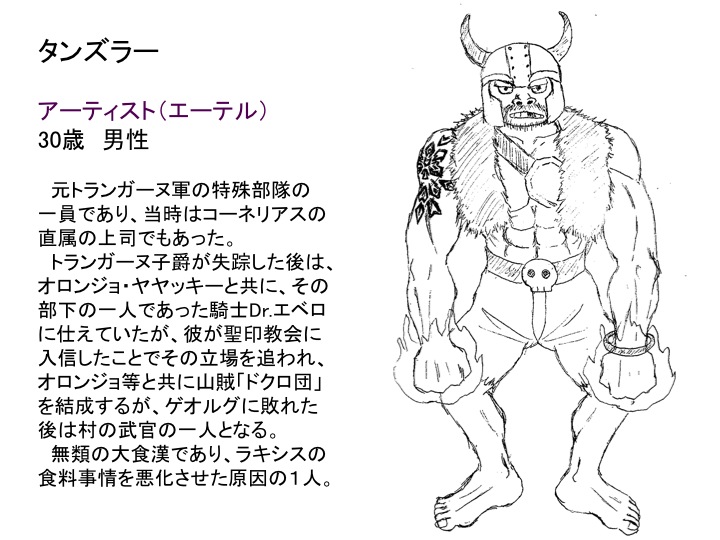 タンズラー
アーティスト（エーテル）
30歳　男性
　元トランガーヌ軍の特殊部隊の
一員であり、当時はコーネリアスの
直属の上司でもあった。
　トランガーヌ子爵が失踪した後は、
オロンジョ・ヤヤッキーと共に、その
部下の一人であった騎士Dr.エベロ
に仕えていたが、彼が聖印教会に
入信したことでその立場を追われ、
オロンジョ等と共に山賊「ドクロ団」
を結成するが、ゲオルグに敗れた
後は村の武官の一人となる。
　無類の大食漢であり、ラキシスの
食料事情を悪化させた原因の１人。